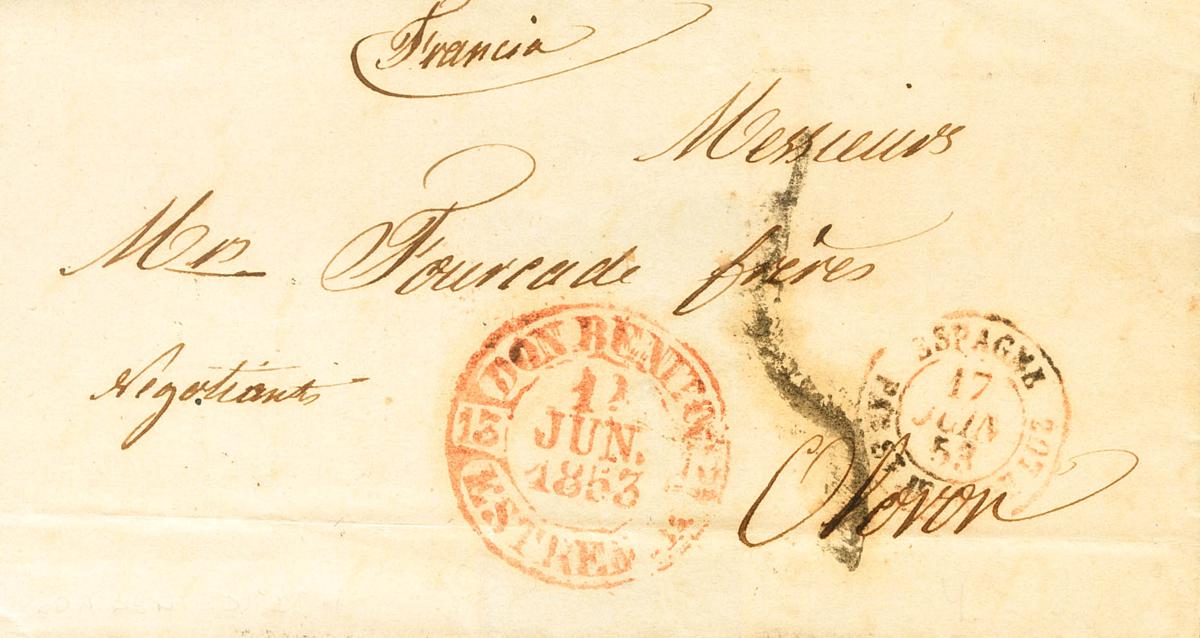 Francia
Messieurs
Mrs Fourcade frères
Negotiants
Oloron
DON BENITO
13
11
JUN.
1853
13
ESTREM.
ESPAGNE
17
JUIN
53
2